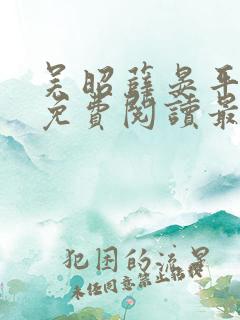 吴昭薛晏平
免費閱讀最
犯困的流星
未经同意禁止转载